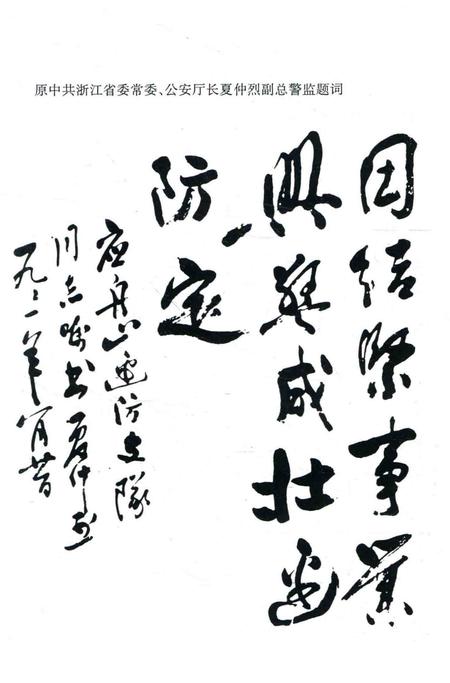 原中共浙江省委常委、公安厅长夏仲烈副总警监题词
团结紧事业
兴警威壮边
防定
应舟山边防支队
同志嘱书夏仲烈
一九九二年八月